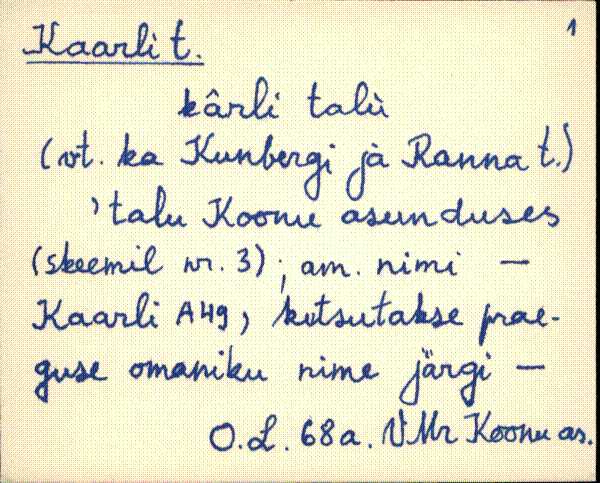 1
Kaarli t.
kârli talù
(vt. ka Kunbergi jà Ranna t.)
'talu Koonu asunduses
(skeemil nr. 3); am. nimi —
Kaarli A49, kutsutakse prae-
guse omaniku nime järgi —
O.L. 68a. VMr Koonu as.